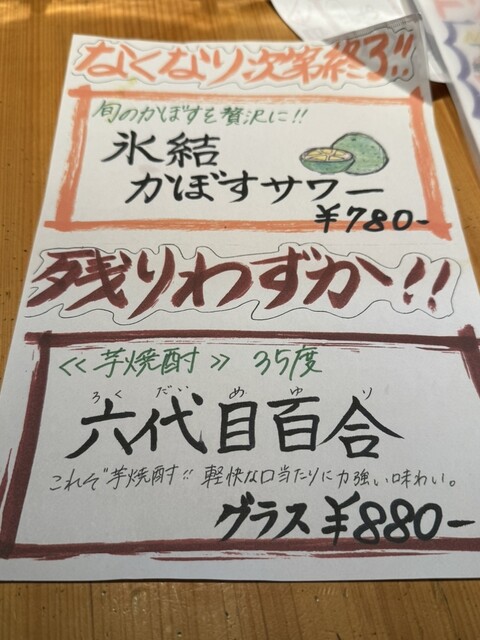 なくなり次第終了!!
旬のかぼすを贅沢に!!
氷結
かぼすサワー
¥780-
残りわずか!!
<<芋焼酎>> 35度
ろくだいめゆり
六代目百合
これぞ芋焼酎!! 軽快な口当たりに力強い味わい。
グラス ¥880-